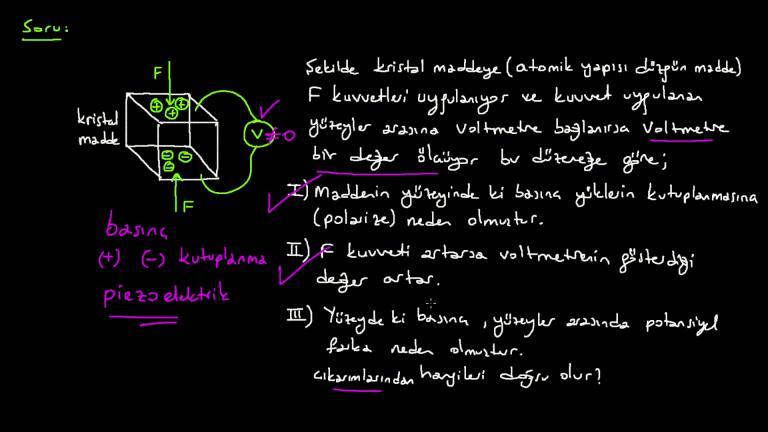 Soru:
Şekilde kristal maddeye (atomik yapısı düzgün madde)
F kuvvetleri uygulanıyor ve kuvvet uygulanan
yüzeyler arasına voltmetre bağlanırsa voltmetre
bir değer ölçüyor bu düzeneğe göre;
I) Maddenin yüzeyinde ki basınç yüklerin kutuplanmasına
(polarize) neden olmuştur.
II) F kuvveti artarsa voltmetrenin gösterdiği
değer artar.
III) Yüzeyde ki basınç, yüzeyler arasında potansiyel
farka neden olmuştur.
çıkarımlarından hangileri doğru olur?
F
+ + +
kristal
madde
V ≠ 0
- - -
F
basınç
(+) (-) kutuplanma
piezoelektrik